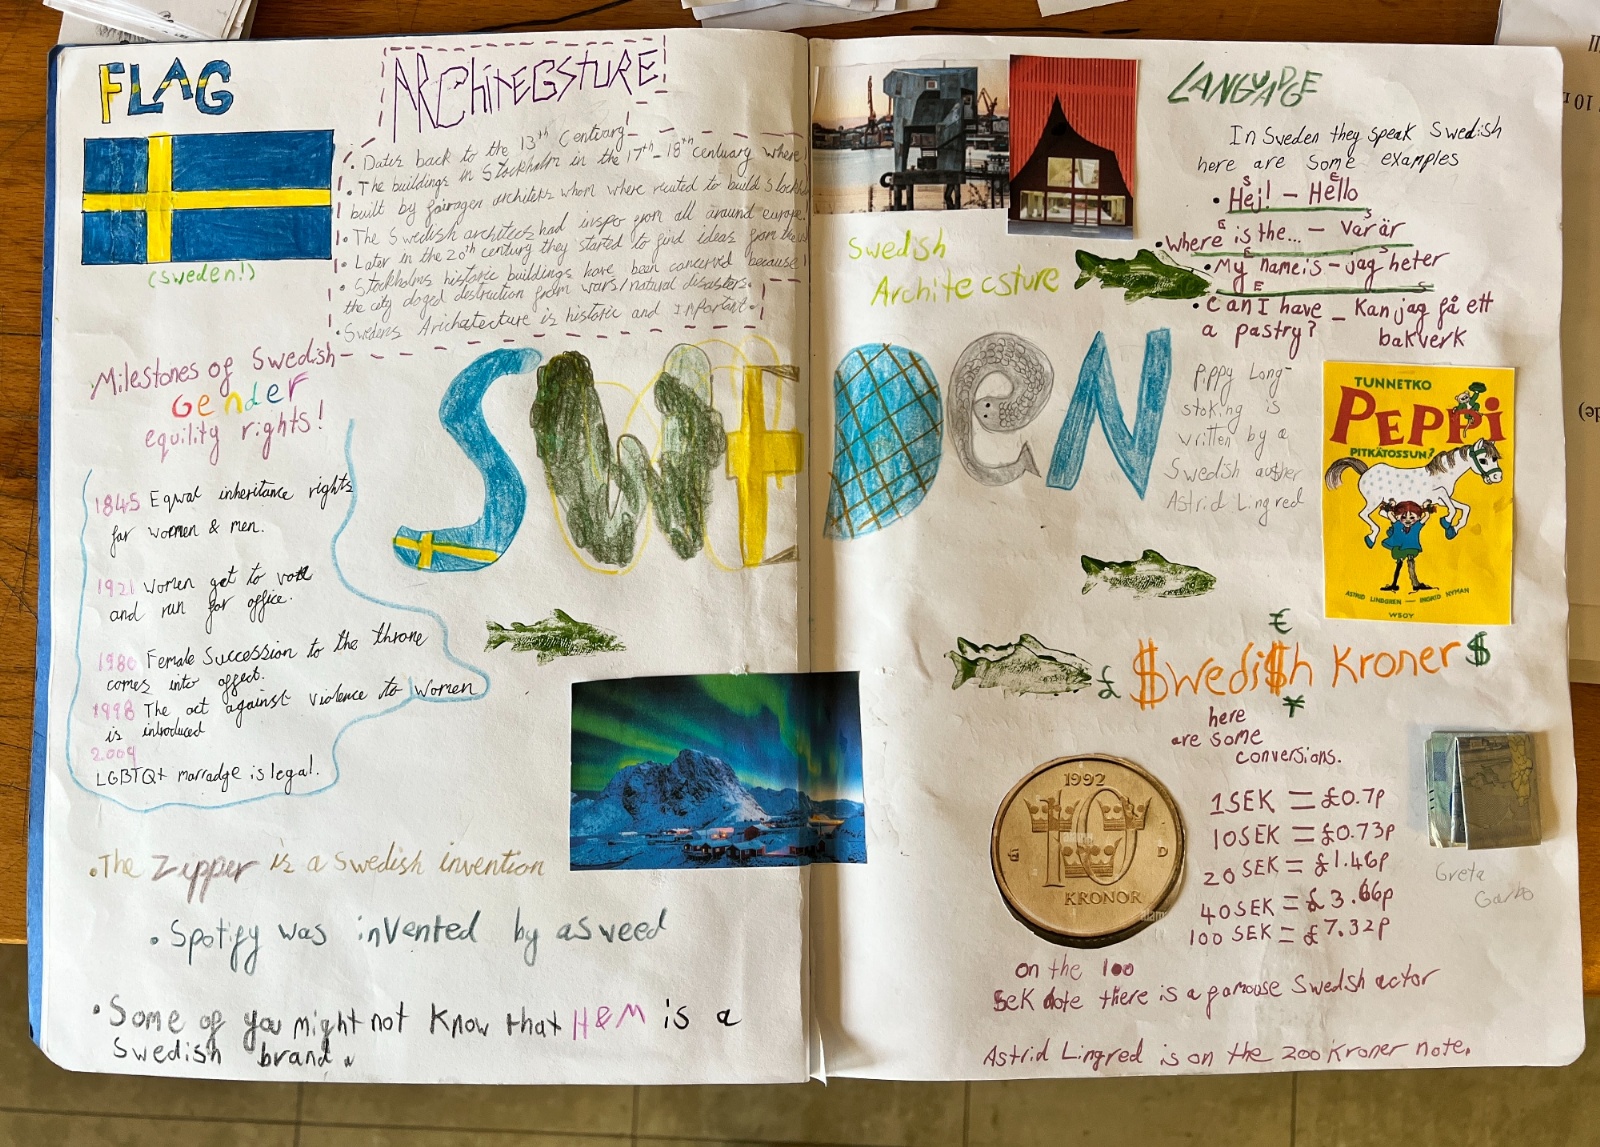 FLAG
(Sweden!)
ARCHITEGSTURE!
• Dates back to the 13th Centuary!
• The buildings in Stockholm in the 17th - 18th centuary where
built by foiragen architets whom where recuted to build Stockh
• The Swedish architecs had inspo from all around europe.
• Later in the 20th century they started to find ideas from the us
• Stockholms historic buildings have been concerved because
the city doged destruction from wars/natural disasters.
• Swedens Arichatecture is historic and Important.
Milestones of Swedish
Gender
equility rights!
1845 Equal inheritance rights
for women & men.
1921 Women get to vote
and run for office.
1980 Female Succession to the throne
comes into effect.
1998 The act against violence to Women
is introduced
2009
LGBTQ+ marradge is legal.
• The Zipper is a Swedish invention
• Spotify was invented by a sweed
• Some of you might not know that H&M is a
Swedish brand.
SWEDEN
Swedish
Architecsture
LANGUAGE
In Sweden they speak Swedish
here are some examples
S E
• Hej! - Hello
E S
• Where is the... - Var är
E S
• My name is - jag heter
E S
• Can I have - Kan jag få ett
a pastry? bakverk
Pippy Long-
stoking is
written by a
Swedish auther
Astrid Lingred
TUNNETKO
PEPPi
PITKÄTOSSUN?
ASTRID LINDGREN — INGRID NYMAN
WSOY
€
£ $wedi$h Kroner $
¥
here
are some
conversions.
1 SEK = £0.7p
10 SEK = £0.73p
20 SEK = £1.46p
40 SEK = £3.66p
100 SEK = £7.32p
1992
10
D
KRONOR
alamy
Greta
Garbo
on the 100
SeK note there is a famouse Swedsh actor
Astrid Lingred is on the 200 Kroner note.